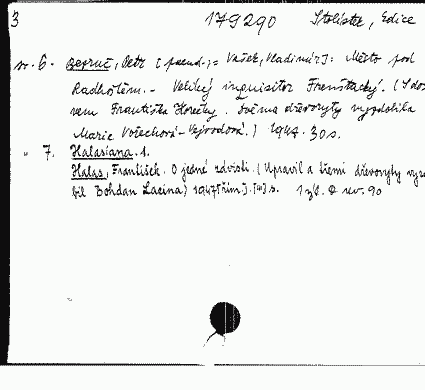 3 179290 Stolístek, Edice
sv. 6. Bezruč, Petr [pseud.] = Vašek, Vladimír]: Město pod
Radhoštěm. - Veliký inquisitor Frenštacký. (S dos
vem Františka Horečky. Dvěma dřevoryty vyzdobila
Marie Vořechová-Vejvodová.) 1947. 30 s.
" 7. Halasiana. 1.
Halas, František. O jedné zdvoři. (Upravil a třemi dřevoryty vyzdo
bil Bohdan Lacina) 1947 [řím]. s. 1 yd. rev. 90